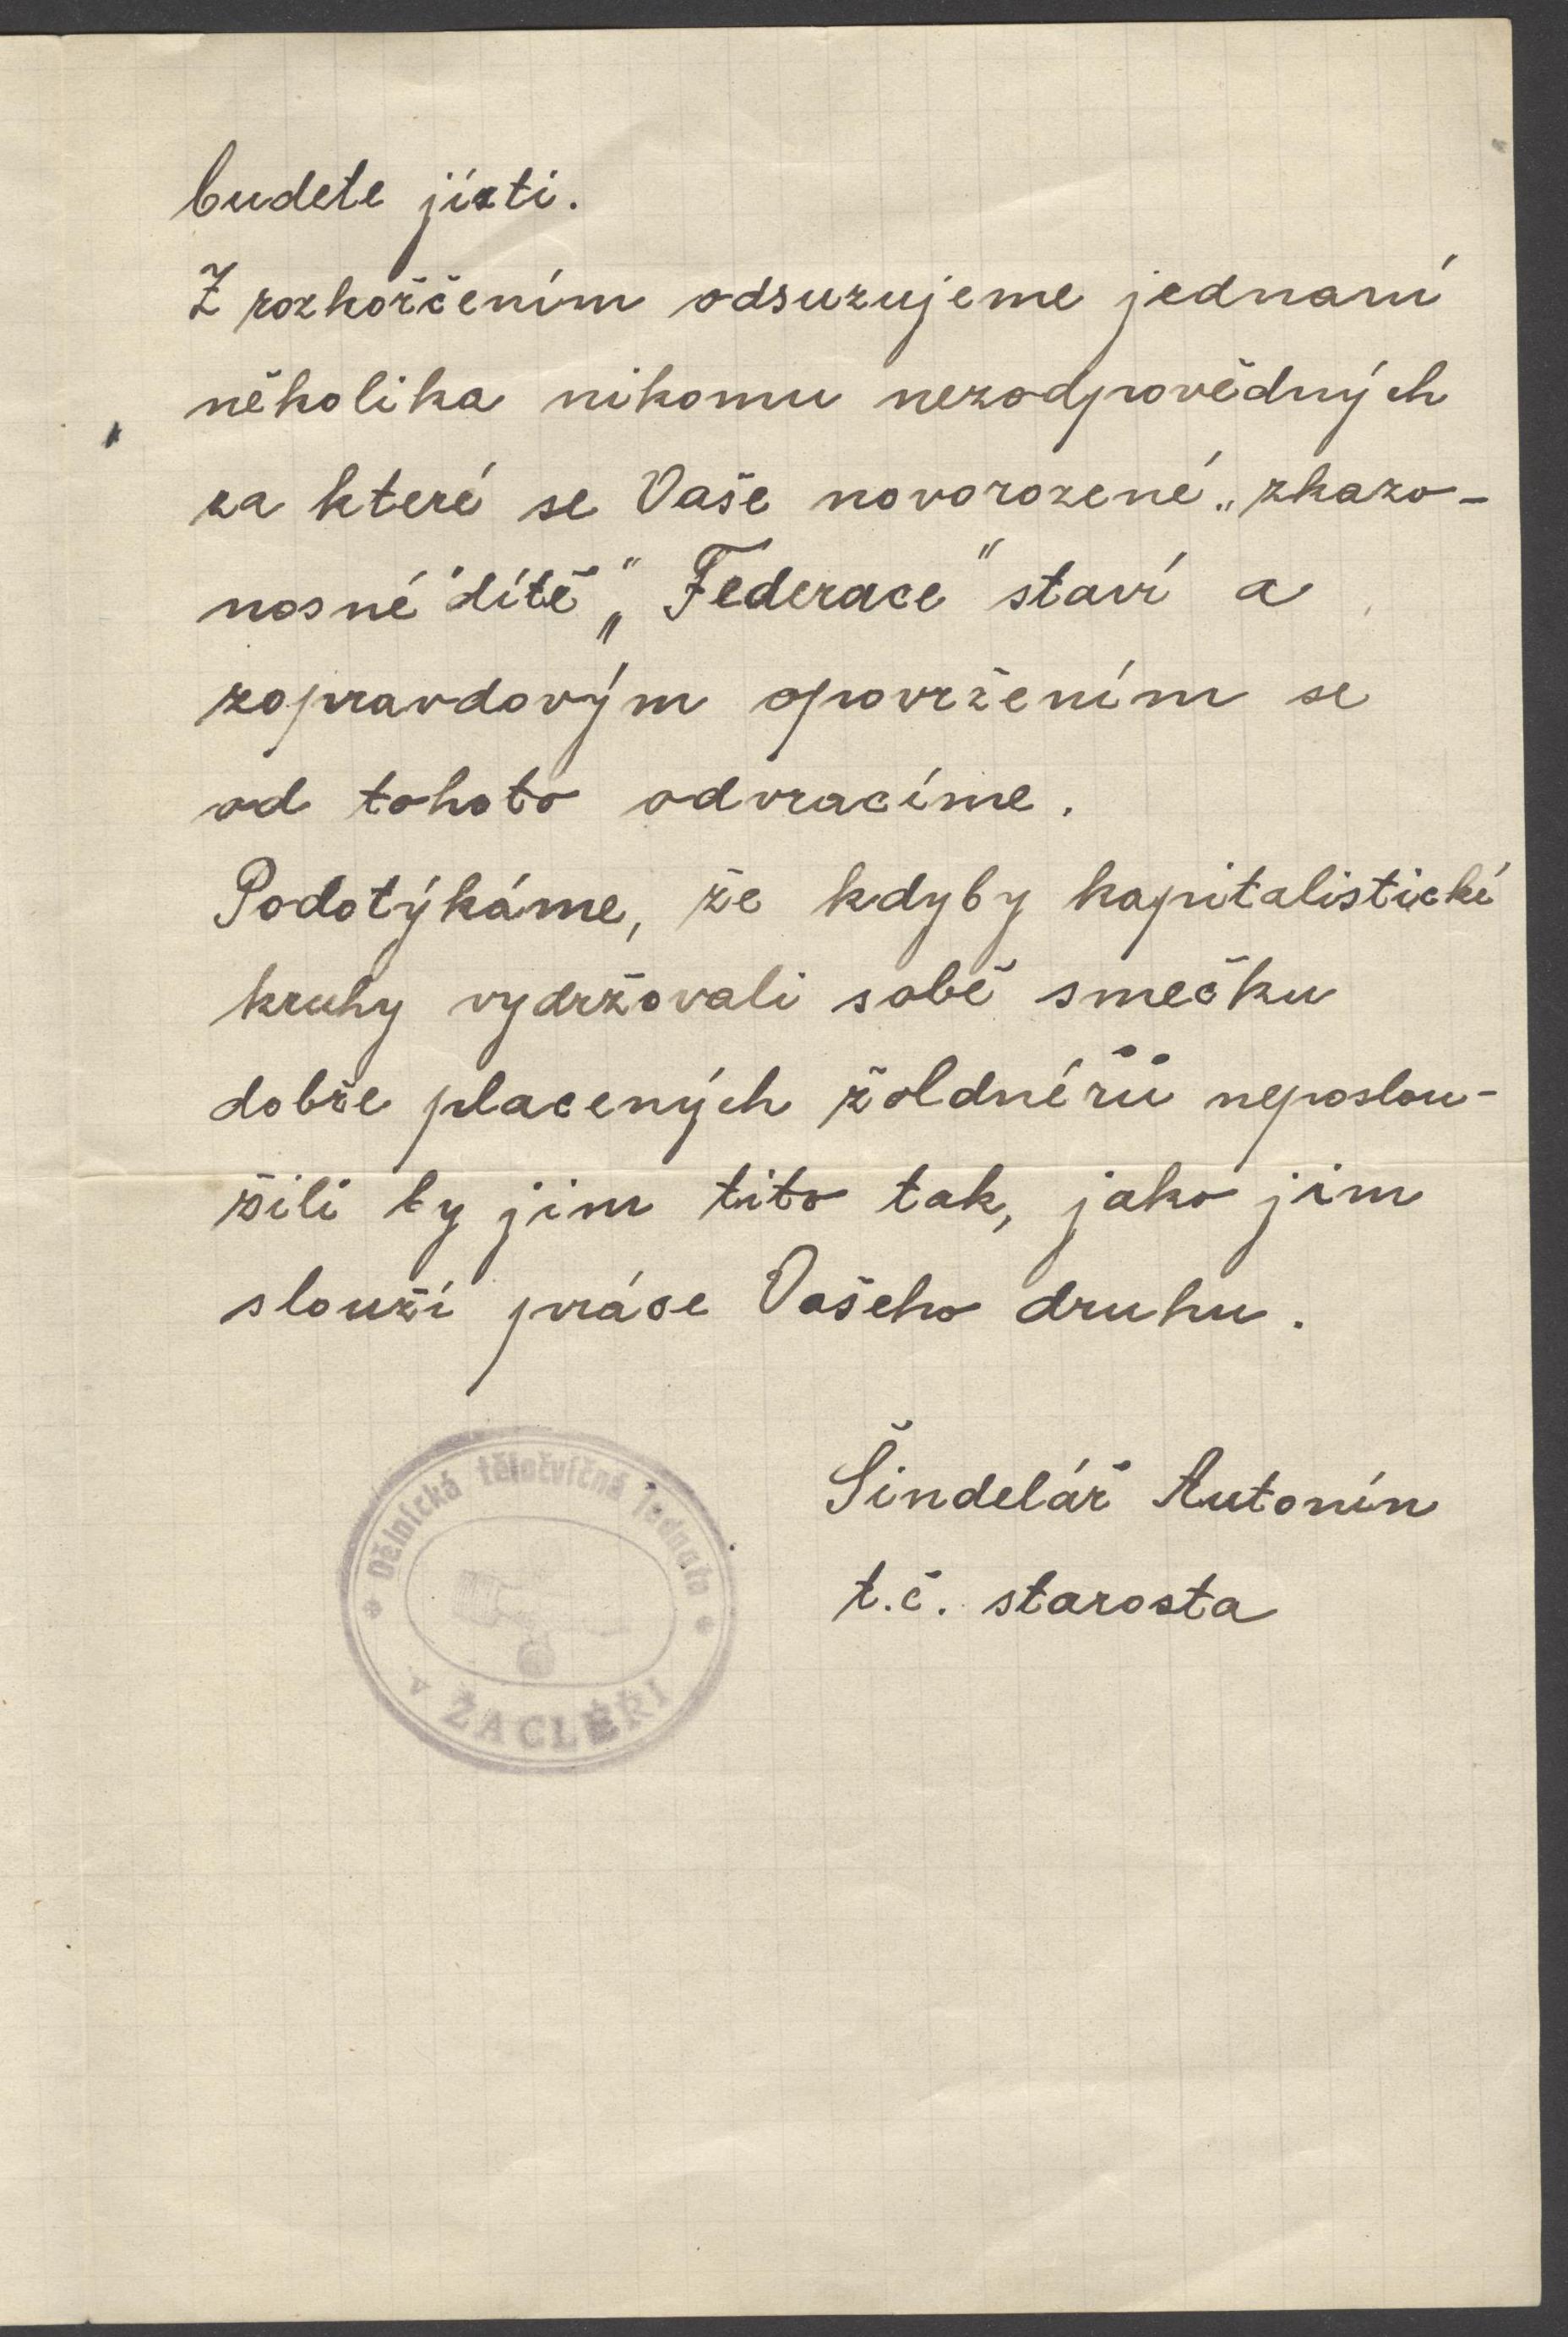 budete jísti.
Z rozhořčením odsuzujeme jednaní
několika nikomu nezodpovědných
za které se Vaše novorozené „zkazo-
nosné" dítě „Federace" staví a
zopravdovým opovržením se
od tohoto odvracíme.
Podotýkáme, že kdyby kapitalistické
kruhy vydržovali sobě smečku
dobře placených žoldnéřů neposlou-
žili by jim tito tak, jako jim
slouží práce Vašeho druhu.
Šindelář Antonín
t.č. starosta
Dělnická tělocvičná Jednota
v ŽACLÉŘI